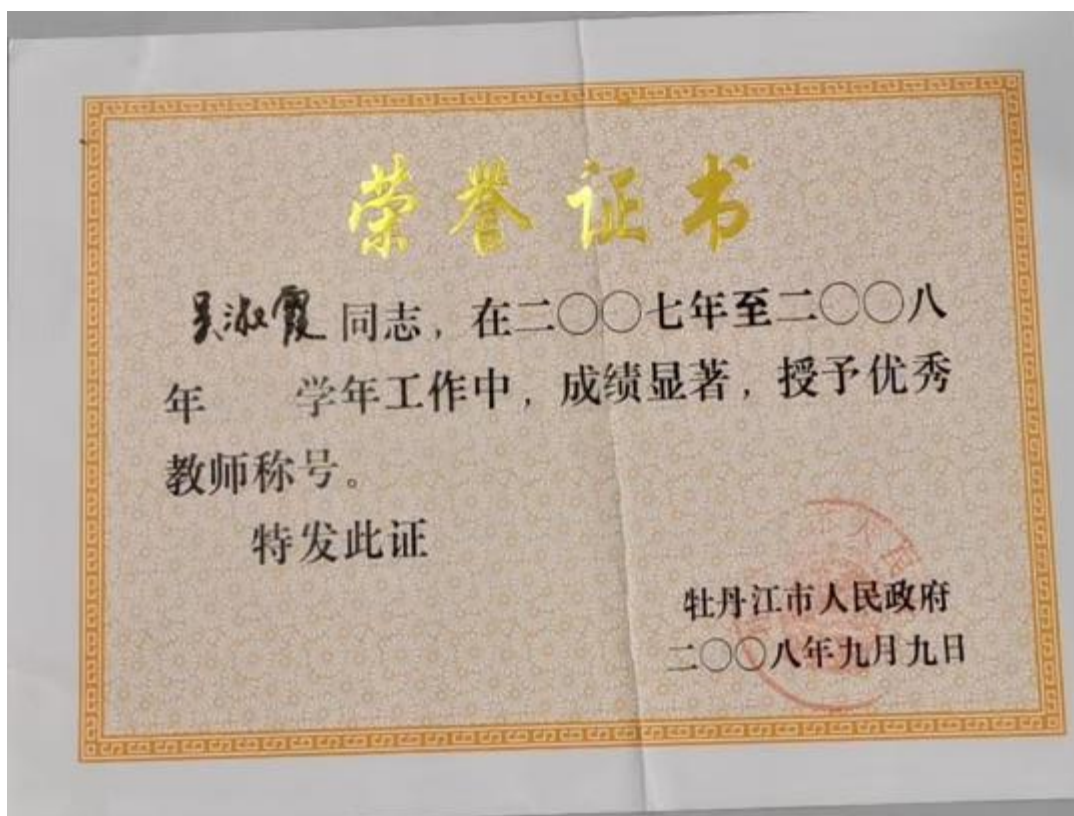 荣誉证书
吴淑霞同志，在二〇〇七年至二〇〇八
年　　学年工作中，成绩显著，授予优秀
教师称号。
特发此证
牡丹江市人民政府
二〇〇八年九月九日